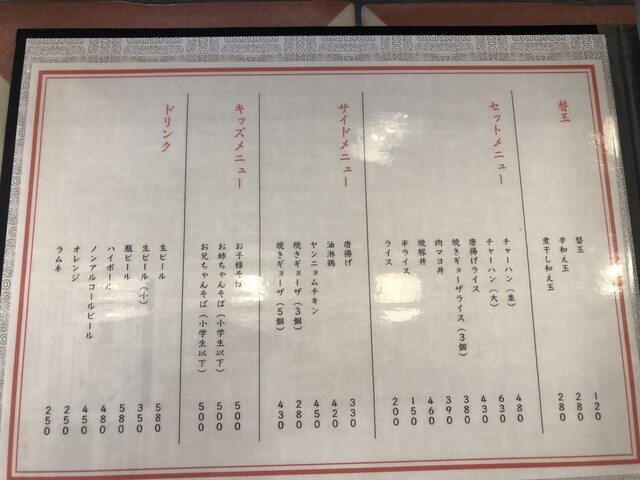 替玉
替玉 120
辛和え玉 280
煮干し和え玉 280
セットメニュー
チャーハン（並） 480
チャーハン（大） 630
唐揚げライス 430
焼きギョーザライス（3個） 380
肉マヨ丼 390
焼豚丼 460
半ライス 150
ライス 200
サイドメニュー
唐揚げ 330
油淋鶏 420
ヤンニョムチキン 450
焼きギョーザ（3個） 280
焼きギョーザ（5個） 430
キッズメニュー
お子様そば 500
お姉ちゃんそば（小学生以下） 500
お兄ちゃんそば（小学生以下） 500
ドリンク
生ビール 580
生ビール（小） 350
瓶ビール 580
ハイボール 480
ノンアルコールビール 450
オレンジ 250
ラムネ 250